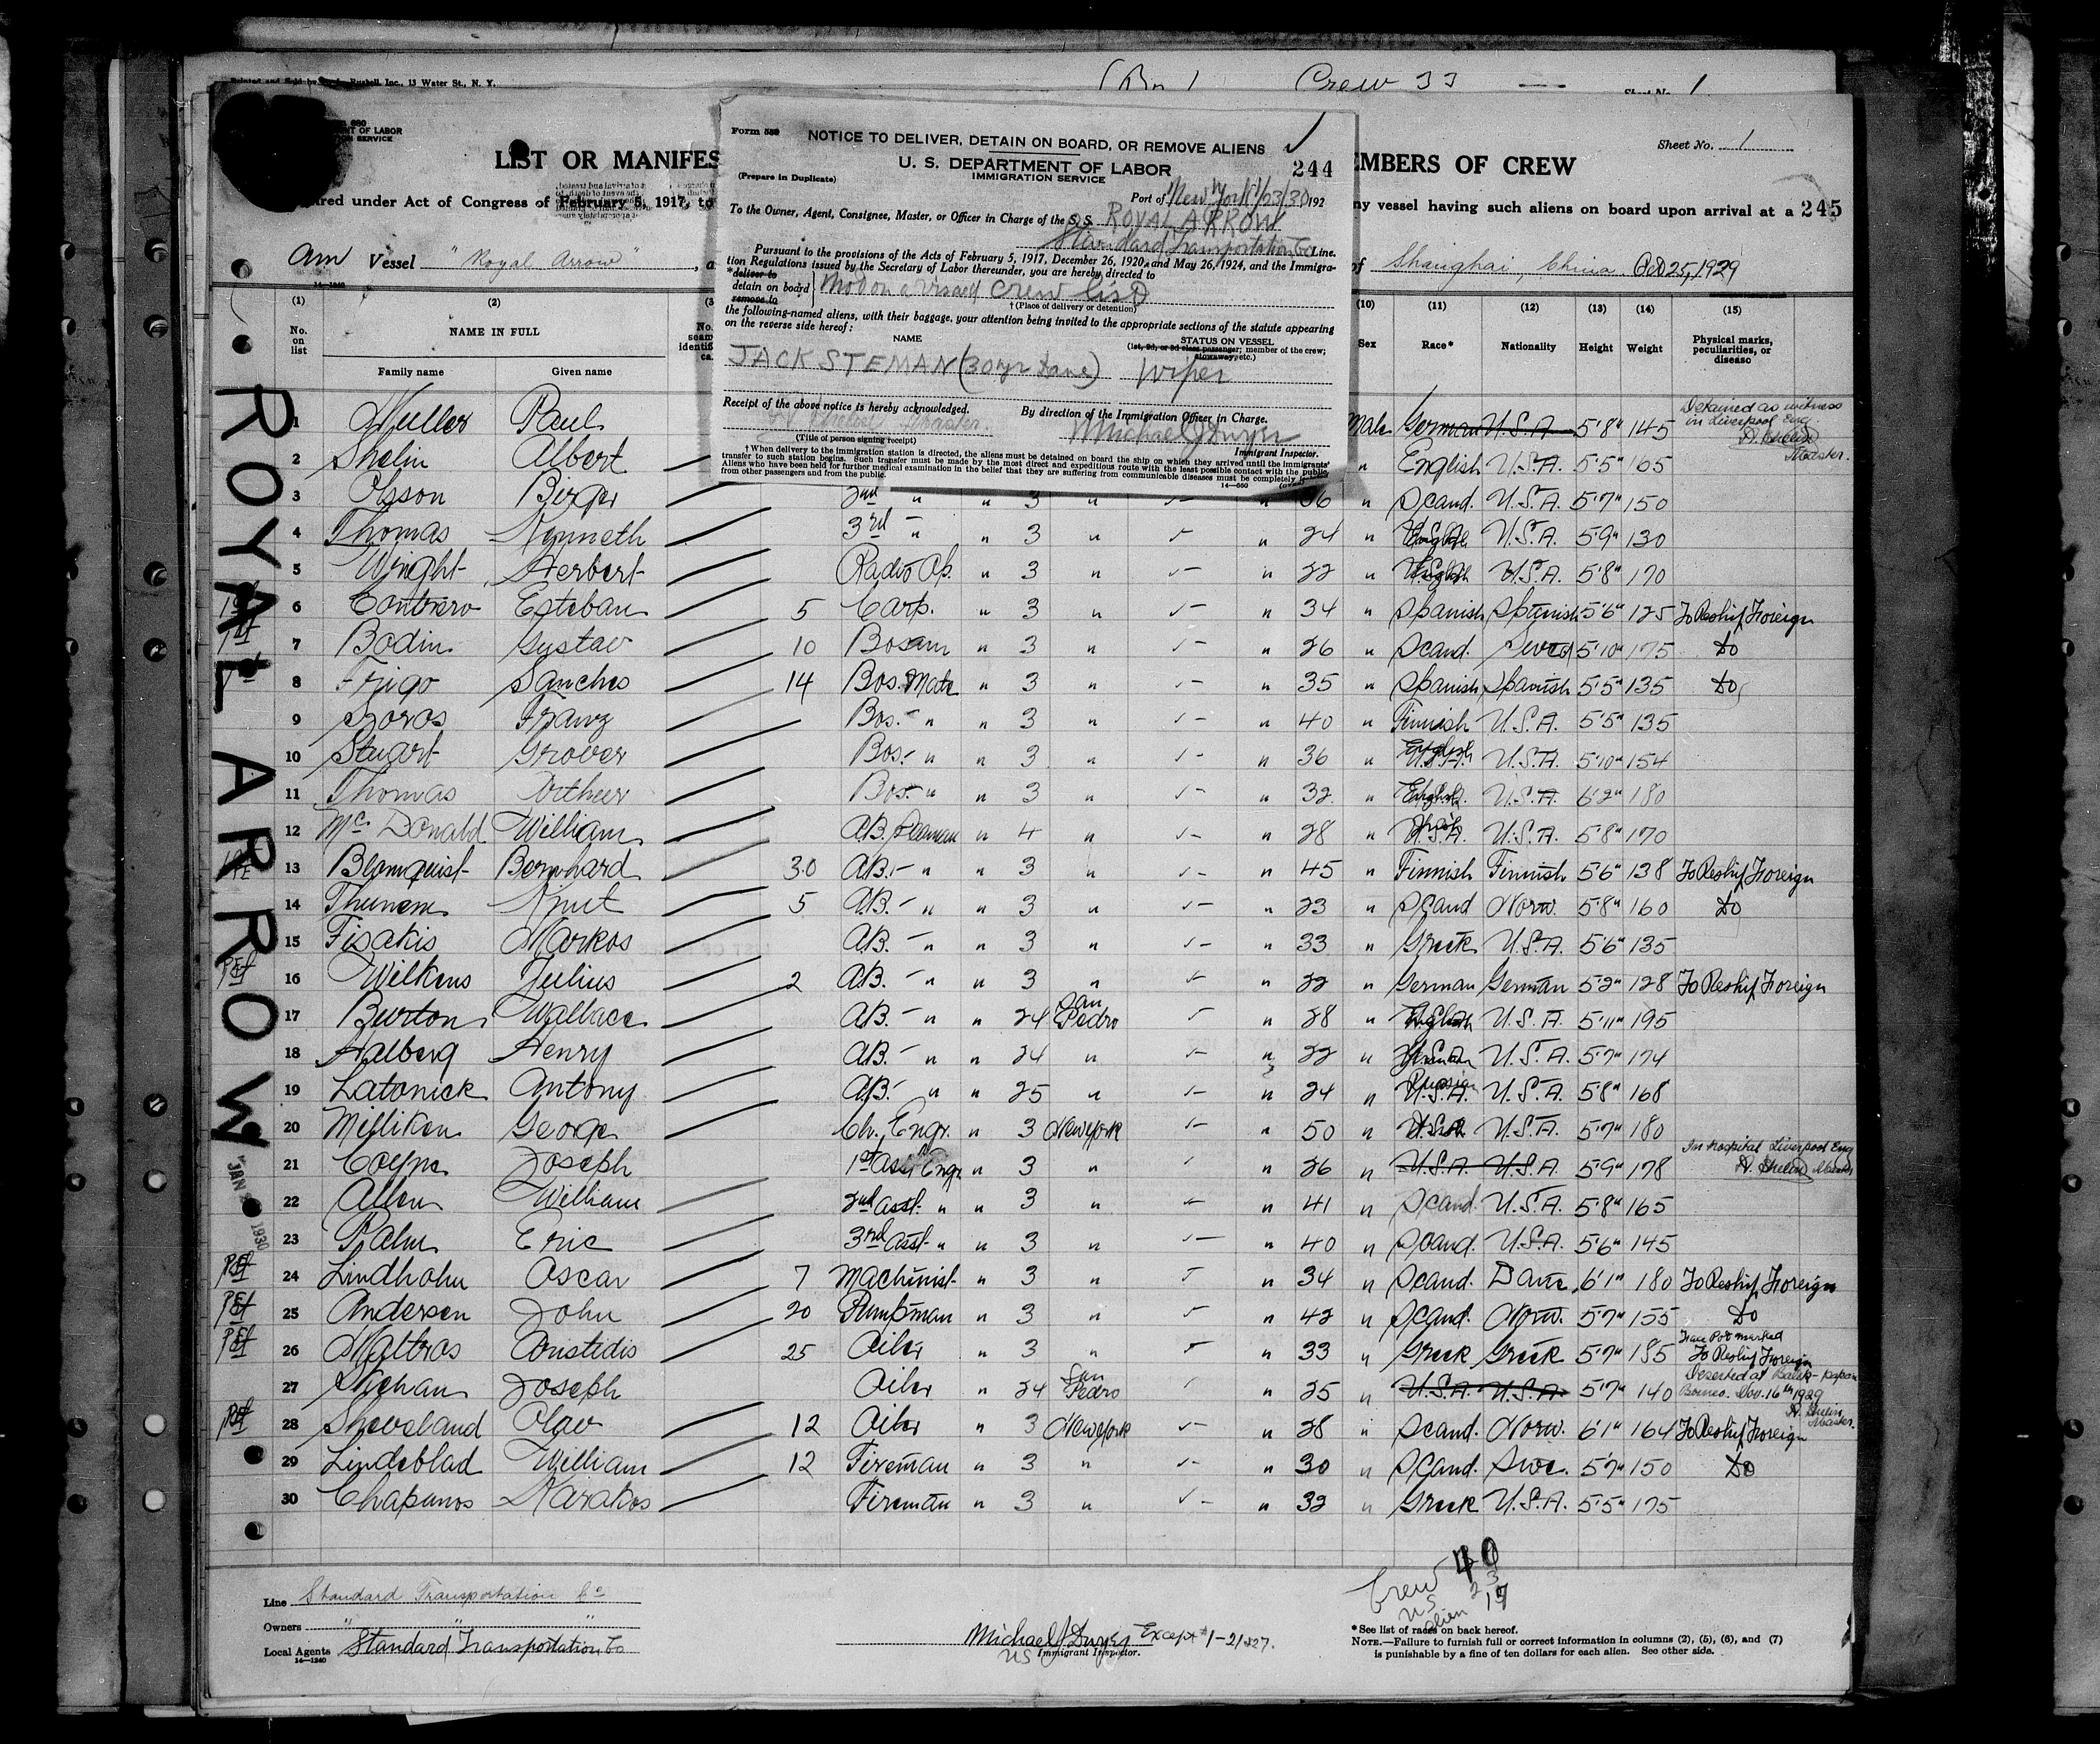 Printed and Sold by Rusbell, Inc., 13 Water St., N. Y.
Crew 33
Sheet No. 1
680
MENT OF LABOR
ION SERVICE
LIST OR MANIFES
EMBERS OF CREW
Sheet No. 1
red under Act of Congress of February 5, 1917, to
ny vessel having such aliens on board upon arrival at a 245
Am Vessel "Royal Arrow", a
of Shanghai, China Oct 25, 1929
14—1240
Form 680
NOTICE TO DELIVER, DETAIN ON BOARD, OR REMOVE ALIENS
U. S. DEPARTMENT OF LABOR
244
IMMIGRATION SERVICE
(Prepare in Duplicate)
Port of New York 1/23/30 192
To the Owner, Agent, Consignee, Master, or Officer in Charge of the S. S. ROYAL ARROW
Standard Transportation Co Line.
Pursuant to the provisions of the Acts of February 5, 1917, December 26, 1920, and May 26, 1924, and the Immigra-
tion Regulations issued by the Secretary of Labor thereunder, you are hereby directed to
*deliver to
detain on board
remove to
Not on a visaed crew list
† (Place of delivery or detention)
the following-named aliens, with their baggage, your attention being invited to the appropriate sections of the statute appearing
on the reverse side hereof:
NAME
STATUS ON VESSEL
(1st, 2d, or 3d class passenger; member of the crew;
stowaway, etc.)
JACK STEMAN (30 yr Dane) Wiper
Receipt of the above notice is hereby acknowledged.
By direction of the Immigration Officer in Charge.
A. Shelin Master.
Michael J Dwyer
(Title of person signing receipt)
Immigrant Inspector.
† When delivery to the immigration station is directed, the aliens must be detained on board the ship on which they arrived until the immigrants'
transfer to such station begins. Such transfer must be made by the most direct and expeditious route with the least possible contact with the public.
Aliens who have been held for further medical examination in the belief that they are suffering from communicable diseases must be completely
from other passengers and from the public.
14—660
(OVER)
(1) (2) (3 (10) (11) (12) (13) (14) (15)
No. on list
NAME IN FULL
Family name Given name
Sex Race* Nationality Height Weight Physical marks, peculiarities, or disease
ROYAL ARROW
JAN 1930
1 Muller Paul Male German U.S.A. 5'8" 145 Detained as witness in Liverpool Eng A. Shelin Master.
2 Shelin Albert " English U.S.A. 5'5" 165
3 Olsson Birger 2nd " " 3 " " 36 " Scand. U.S.A. 5'7" 150
4 Thomas Kenneth 3rd " " 3 " " 24 " English U.S.A. 5'9" 130
5 Wright Herbert Radio Op. " 3 " " 22 " English U.S.A. 5'8" 170
6 Contrero Esteban 5 Carp. " 3 " " 34 " Spanish Spanish 5'6" 125 To Reship Foreign
7 Bodin Gustav 10 Bosun " 3 " " 26 " Scand. Swed 5'10" 175 Do
8 Frigo Sanches 14 Bos. Mate " 3 " " 35 " Spanish Spanish 5'5" 135 Do
9 Soros Franz Bos. " " 3 " " 40 " Finnish U.S.A. 5'5" 135
10 Stuart Grover Bos. " " 3 " " 36 " English U.S.A. 5'10" 154
11 Thomas Arther Bos. " " 3 " " 32 " English U.S.A. 6'2" 180
12 Mc Donald William A.B. Seaman " 4 " " 28 " Irish U.S.A. 5'8" 170
13 Blomquist Bernhard 30 A.B. " " 3 " " 45 " Finnish Finnish 5'6" 138 To Reship Foreign
14 Thunem Knut 5 A.B. " " 3 " " 23 " Scand Norw. 5'8" 160 Do
15 Fisakis Markos A.B. " " 3 " " 33 " Greek U.S.A. 5'6" 135
16 Wilkens Julius 2 A.B. " " 3 " " 22 " German German 5'2" 128 To Reship Foreign
17 Burton Wallace A.B. " " 24 San Pedro " 28 " English U.S.A. 5'11" 195
18 Halberg Henry A.B. " " 24 " " 22 " U.S.A. U.S.A. 5'7" 174
19 Latonick Antony A.B. " " 25 " " 24 " Russian U.S.A. 5'8" 168
20 Milliken George Ch. Engr. " 3 New York " 50 " U.S.A. 5'7" 180
21 Coyne Joseph 1st Asst Engr " 3 " " 26 " U.S.A. U.S.A. 5'9" 178 In hospital Liverpool Eng A. Shelin Master
22 Allen William 2nd Asst. " " 3 " " 41 " Scand. U.S.A. 5'8" 165
23 Palm Eric 3rd Asst. " " 3 " " 40 " Scand. U.S.A. 5'6" 145
24 Lindholm Oscar 7 Machinist " 3 " " 34 " Scand. Dane 6'1" 180 To Reship Foreign
25 Andersen John 20 Pumpman " 3 " " 42 " Scand. Norw. 5'7" 155 Do
26 Maltros Aristidis 25 Oiler " 3 " " 33 " Greek Greek 5'7" 185 Face Pox marked To Reship Foreign
27 Joseph Oiler " 24 San Pedro " 25 " U.S.A. U.S.A. 5'7" 140 Deserted at Balik-papan Borneo. Nov. 16th 1929 A. Shelin Master.
28 Sheveland Olav 12 Oiler " 3 New York " 28 " Scand. Norw. 6'1" 164 To Reship Foreign
29 Lindeblad William 12 Fireman " 3 " " 30 " Scand. Swe. 5'7" 150 Do
30 Chapanos Karakos Fireman " 3 " " 32 " Greek U.S.A. 5'5" 175
Crew 40
US 23
Alien 17
Line Standard Transportation Co
Owners " " "
Local Agents Standard Transportation Co
14—1240
Michael J Dwyer Except #1-21&27.
US Immigrant Inspector.
*See list of races on back hereof.
NOTE.—Failure to furnish full or correct information in columns (2), (5), (6), and (7)
is punishable by a fine of ten dollars for each alien. See other side.